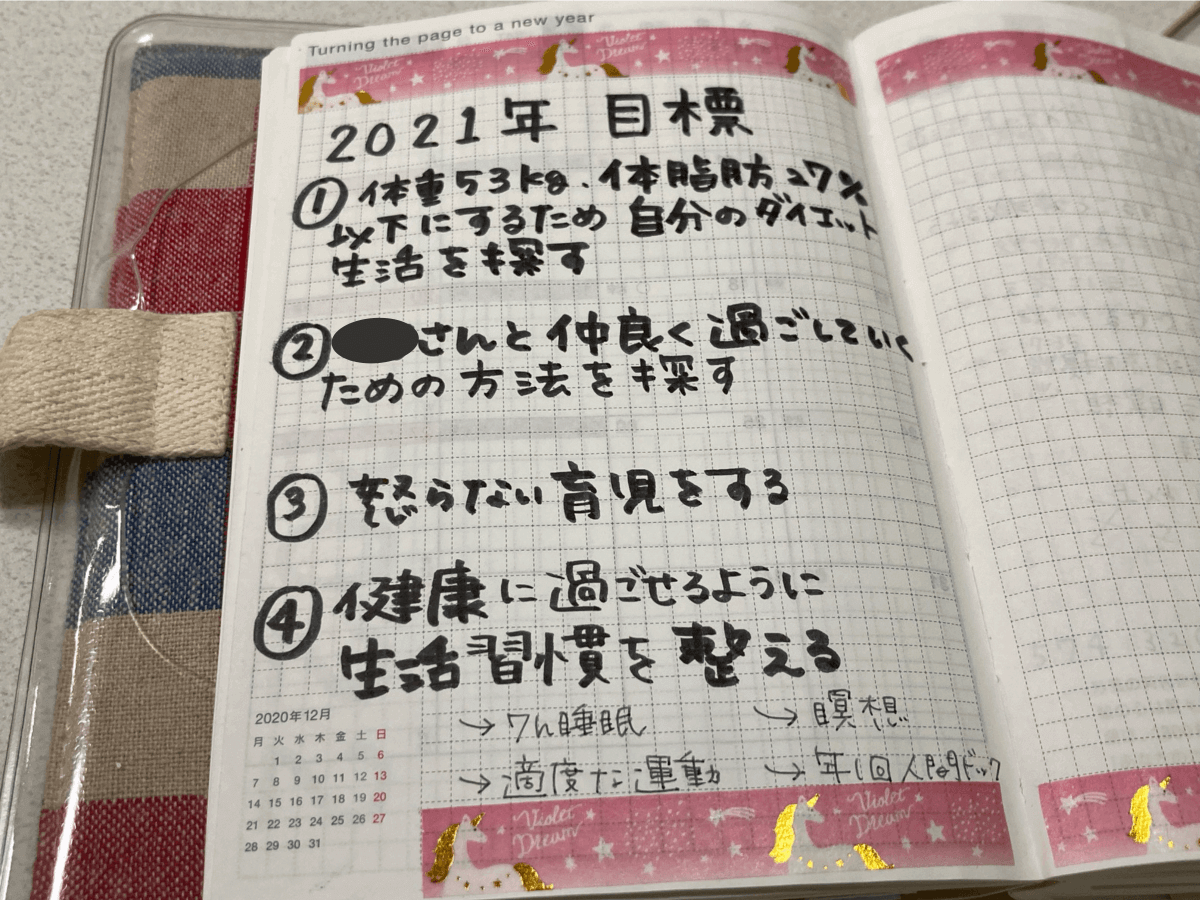 Turning the page to a new year
Violet Dream
Violet Dream
2021年 目標
① 体重53kg、体脂肪27%
以下にするため 自分のダイエット
生活を探す
② さんと仲良く過ごしていく
ための方法を探す
③ 怒らない育児をする
④ 健康に過ごせるように
生活習慣を整える
→ 7h睡眠 → 瞑想
→ 適度な運動 → 年1回人間ドック
2020年12月
月 火 水 木 金 土 日
1 2 3 4 5 6
7 8 9 10 11 12 13
14 15 16 17 18 19 20
21 22 23 24 25 26 27
28 29 30 31
Violet Dream
Violet Dream